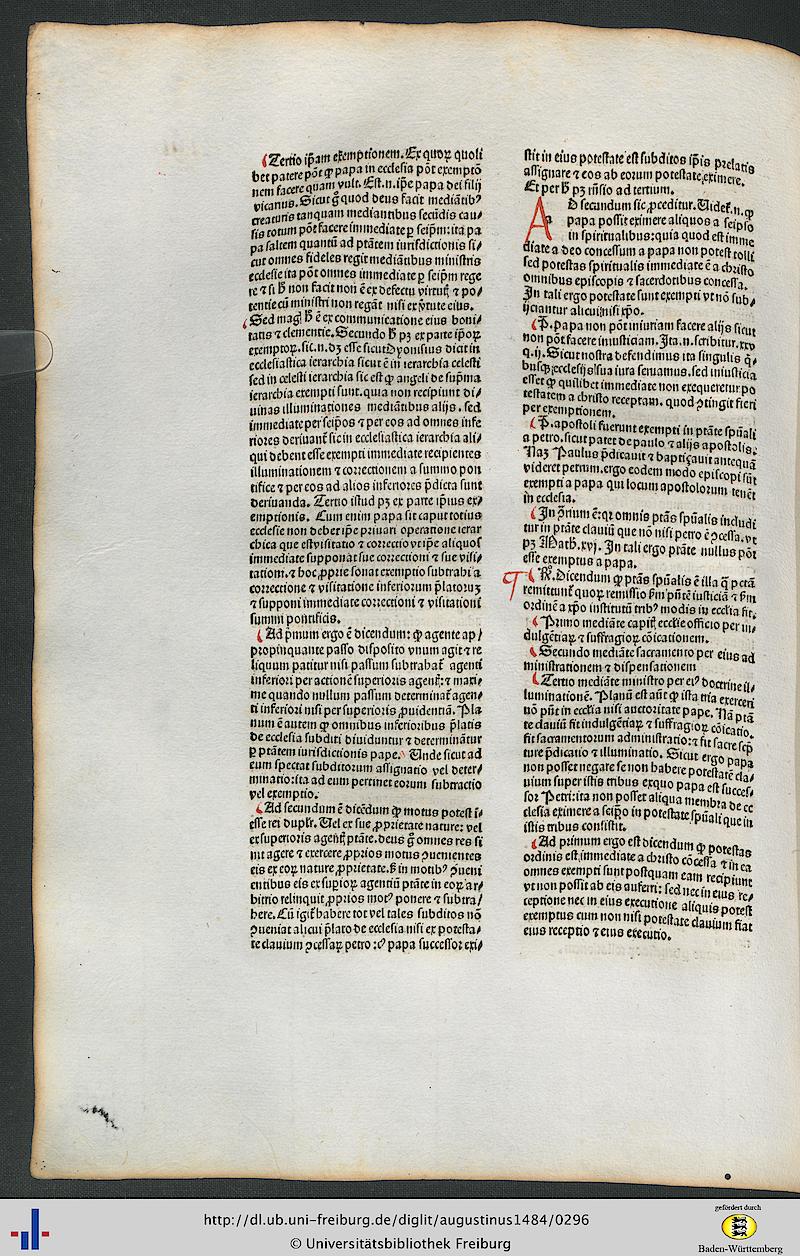 Tertio ip̃am exemptionem. Ex quoꝝ quoli
bet patere põt ꝙ papa in ecclesia põt exemptõ
nem facere quam vult. Est.n.ip̃e papa dei filij
vicarius. Sicut g̊ quod deus facit mediãtibꝰ
creaturis tanquam mediantibus secũdis cau⸗
sis totum põt facere immediate ꝑ seip̃m: ita pa
pa saltem quantũ ad ptãtem iurisdictionis si⸗
cut omnes fideles regit mediãtibus ministris
ecclesie ita põt omnes immediate ꝑ seip̃m rege
re ⁊ si h̾ non facit non ẽ ex defectu virtutꝭ ⁊ po⸗
tentie cũ ministri non regãt nisi ex ꝟtute eius.
Sed magꝭ h̾ ẽ ex communicatione eius boni⸗
tatis ⁊ clementie. Secundo h̾ pꝫ ex parte ip̃oꝝ
exemptoꝝ. sic.n.dꝫ esse sicut Dyonisius dicit in
ecclesiastica ierarchia sicut ẽ in ierarchia celesti
sed in celesti ierarchia sic est ꝙ angeli de sup̃ma
ierarchia exempti sunt. quia non recipiunt di⸗
uinas illuminationes mediãtibus alijs. sed
immediate per seip̃os ⁊ per eos ad omnes infe
riores deriuant᷑ sic in ecclesiastica ierarchia ali⸗
qui debent esse exempti immediate recipientes
illuminationem ⁊ correctionem a summo pon
tifice ⁊ per eos ad alios inferiores p̃dicta sunt
deriuanda. Tertio istud pꝫ ex parte ip̃ius ex⸗
emptionis. Cum enim papa sit caput totius
ecclesie non debet ip̃e priuari operatione ierar
chica que est visitatio ⁊ correctio vt ip̃e aliquos
immediate supponat sue correctioni ⁊ sue visi⸗
tationi. ⁊ hoc ꝓprie sonat exemptio subtrahi a
correctione ⁊ visitatione inferiorum p̃latorum
⁊ supponi immediate correctioni ⁊ visitationi
summi pontificis.
Ad p̃mum ergo ẽ dicendum: ꝙ agente ap⸗
propinquante passo disposito vnum agit ⁊ re
liquum patitur nisi passum subtrahat᷑ agenti
inferiori per actionẽ superioris agentꝭ: ⁊ maxi⸗
me quando nullum passum determinat᷑ agen⸗
ti inferiori nisi per superioris ꝓuidentiã. Pla
num ẽ autem ꝙ omnibus inferioribus p̃latis
de ecclesia subditi diuiduntur ⁊ determinãtur
ꝑ ptãtem iurisdictionis pape. Unde sicut ad
eum spectat subditorum assignatio vel deter⸗
minatio: ita ad eum pertinet eorum subtractio
vel exemptio.
Ad secundum ẽ dicẽdum ꝙ motus potest ĩ⸗
esse rei duplr̃. Uel ex sue ꝓprietate nature: vel
ex superioris agentꝭ ptãte. deus g̊ omnes res si
nit agere ⁊ exercere ꝓprios motus ꝯuenientes
eis ex eoꝝ nature ꝓprietate. s̃ in motibꝰ ꝯueni
entibus eis ex supioꝝ agentiũ ptãte in eoꝝ ar⸗
bitrio relinquit ꝓprios motꝰ ponere ⁊ subtra⸗
here. Cũ igit᷑ habere tot vel tales subditos nõ
ꝯueniat alicui p̃lato de ecclesia nisi ex potesta⸗
te clauium ꝯcessaꝝ petro: cꝰ papa successor exi⸗
stit in eius potestate est subditos ip̃is prelatis
assignare ⁊ eos ab eorum potestate eximere.
Et per h̾ pꝫ rñsio ad tertium.
AD secundum sic ꝓceditur. Uidet᷑.n.ꝙ
papa possit eximere aliquos a seipso
in spiritualibus: quia quod est imme
diate a deo concessum a papa non potest tolli
sed potestas spiritualis immediate ẽ a christo
omnibus episcopis ⁊ sacerdotibus concessa.
In tali ergo potestate sunt exempti vt nõ sub⸗
ijciantur alicui nisi xp̃o.
P. papa non põt iniuriam facere alijs sicut
non põt facere iniusticiam. Ita.n.scribitur.xxv
q.ij. Sicut nostra defendimus ita singulis q̃⸗
busqꝫ ecclesijs sua iura seruamus. sed iniusticia
esset ꝙ quilibet immediate non exequeretur po
testatem a christo receptam. quod ꝯtingit fieri
per exemptionem.
P. apostoli fuerunt exempti in ptãte spũali
a petro. sicut patet de paulo ⁊ alijs apostolis.
Naꝫ Paulus p̃dicauit ⁊ baptiçauit antequã
videret petrum. ergo eodem modo episcopi sũt
exempti a papa qui locum apostolorum tenẽt
in ecclesia.
In ꝯ̃rium ẽ: qꝛ omnis ptãs spũalis includi
tur in ptãte clauiũ que nõ nisi petro ẽ ꝯcessa. vt
pꝫ Math̃.xvj. In tali ergo ptãte nullus põt
esse exemptus a papa.
R̃. Dicendum ꝙ ptãs spũalis ẽ illa q̃ pctã
remittunt᷑ quoꝝ remissio s̃m pũctẽ iusticiã ⁊ s̃m
ordinẽ a xp̃o institutũ tribꝰ modis in ecclia fit.
Primo mediãte capitꝭ ecclie officio per in⸗
dulgẽtiaꝝ ⁊ suffragioꝝ cõicationem.
Secundo mediãte sacramento per eius ad
ministrationem ⁊ dispensationem
Tertio mediãte ministro per eiꝰ doctrine il⸗
luminationẽ. Planũ est aũt ꝙ ista tria exerceri
nõ pñt in ecclia nisi auctoritate pape. Nã ptã
te clauiũ fit indulgẽtiaꝝ ⁊ suffragioꝝ cõicatio.
fit sacramentorum administratio: ⁊ fit sacre scͥp
ture p̃dicatio ⁊ illuminatio. Sicut ergo papa
non posset negare se non habere potestatẽ cla⸗
uium super istis tribus exquo papa est succes⸗
sor Petri: ita non posset aliqua membra de ec
clesia eximere a seip̃o in potestate spũali que in
istis tribus consistit.
Ad primum ergo est dicendum ꝙ potestas
ordinis est immediate a christo cõcessa ⁊ in ea
omnes exempti sunt postquam eam recipiunt
vt non possit ab eis auferri: sed nec in eius re⸗
ceptione nec in eius executione aliquis potest
exemptus cum non nisi potestate clauium fiat
eius receptio ⁊ eius executio.
http://dl.ub.uni-freiburg.de/diglit/augustinus1484/0296
© Universitätsbibliothek Freiburg
gefördert durch
Baden-Württemberg